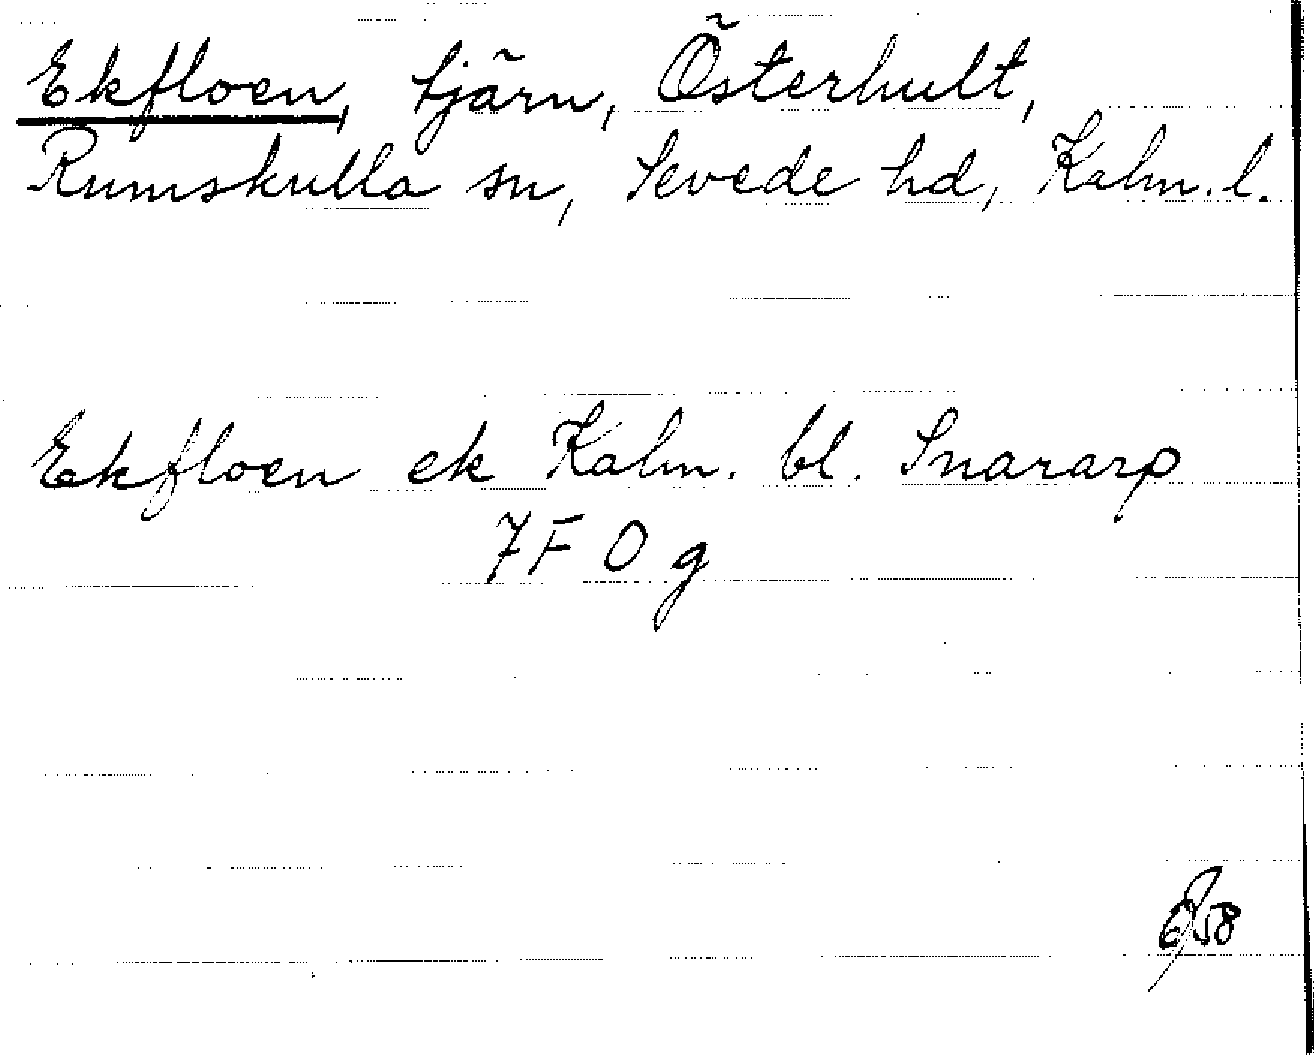 Ekfloen, tjärn, Österhult,
Rumskulla sn, Sevede hd, Kalm. l.
Ekfloen ek Kalm. bl. Snararp
7F 0 g